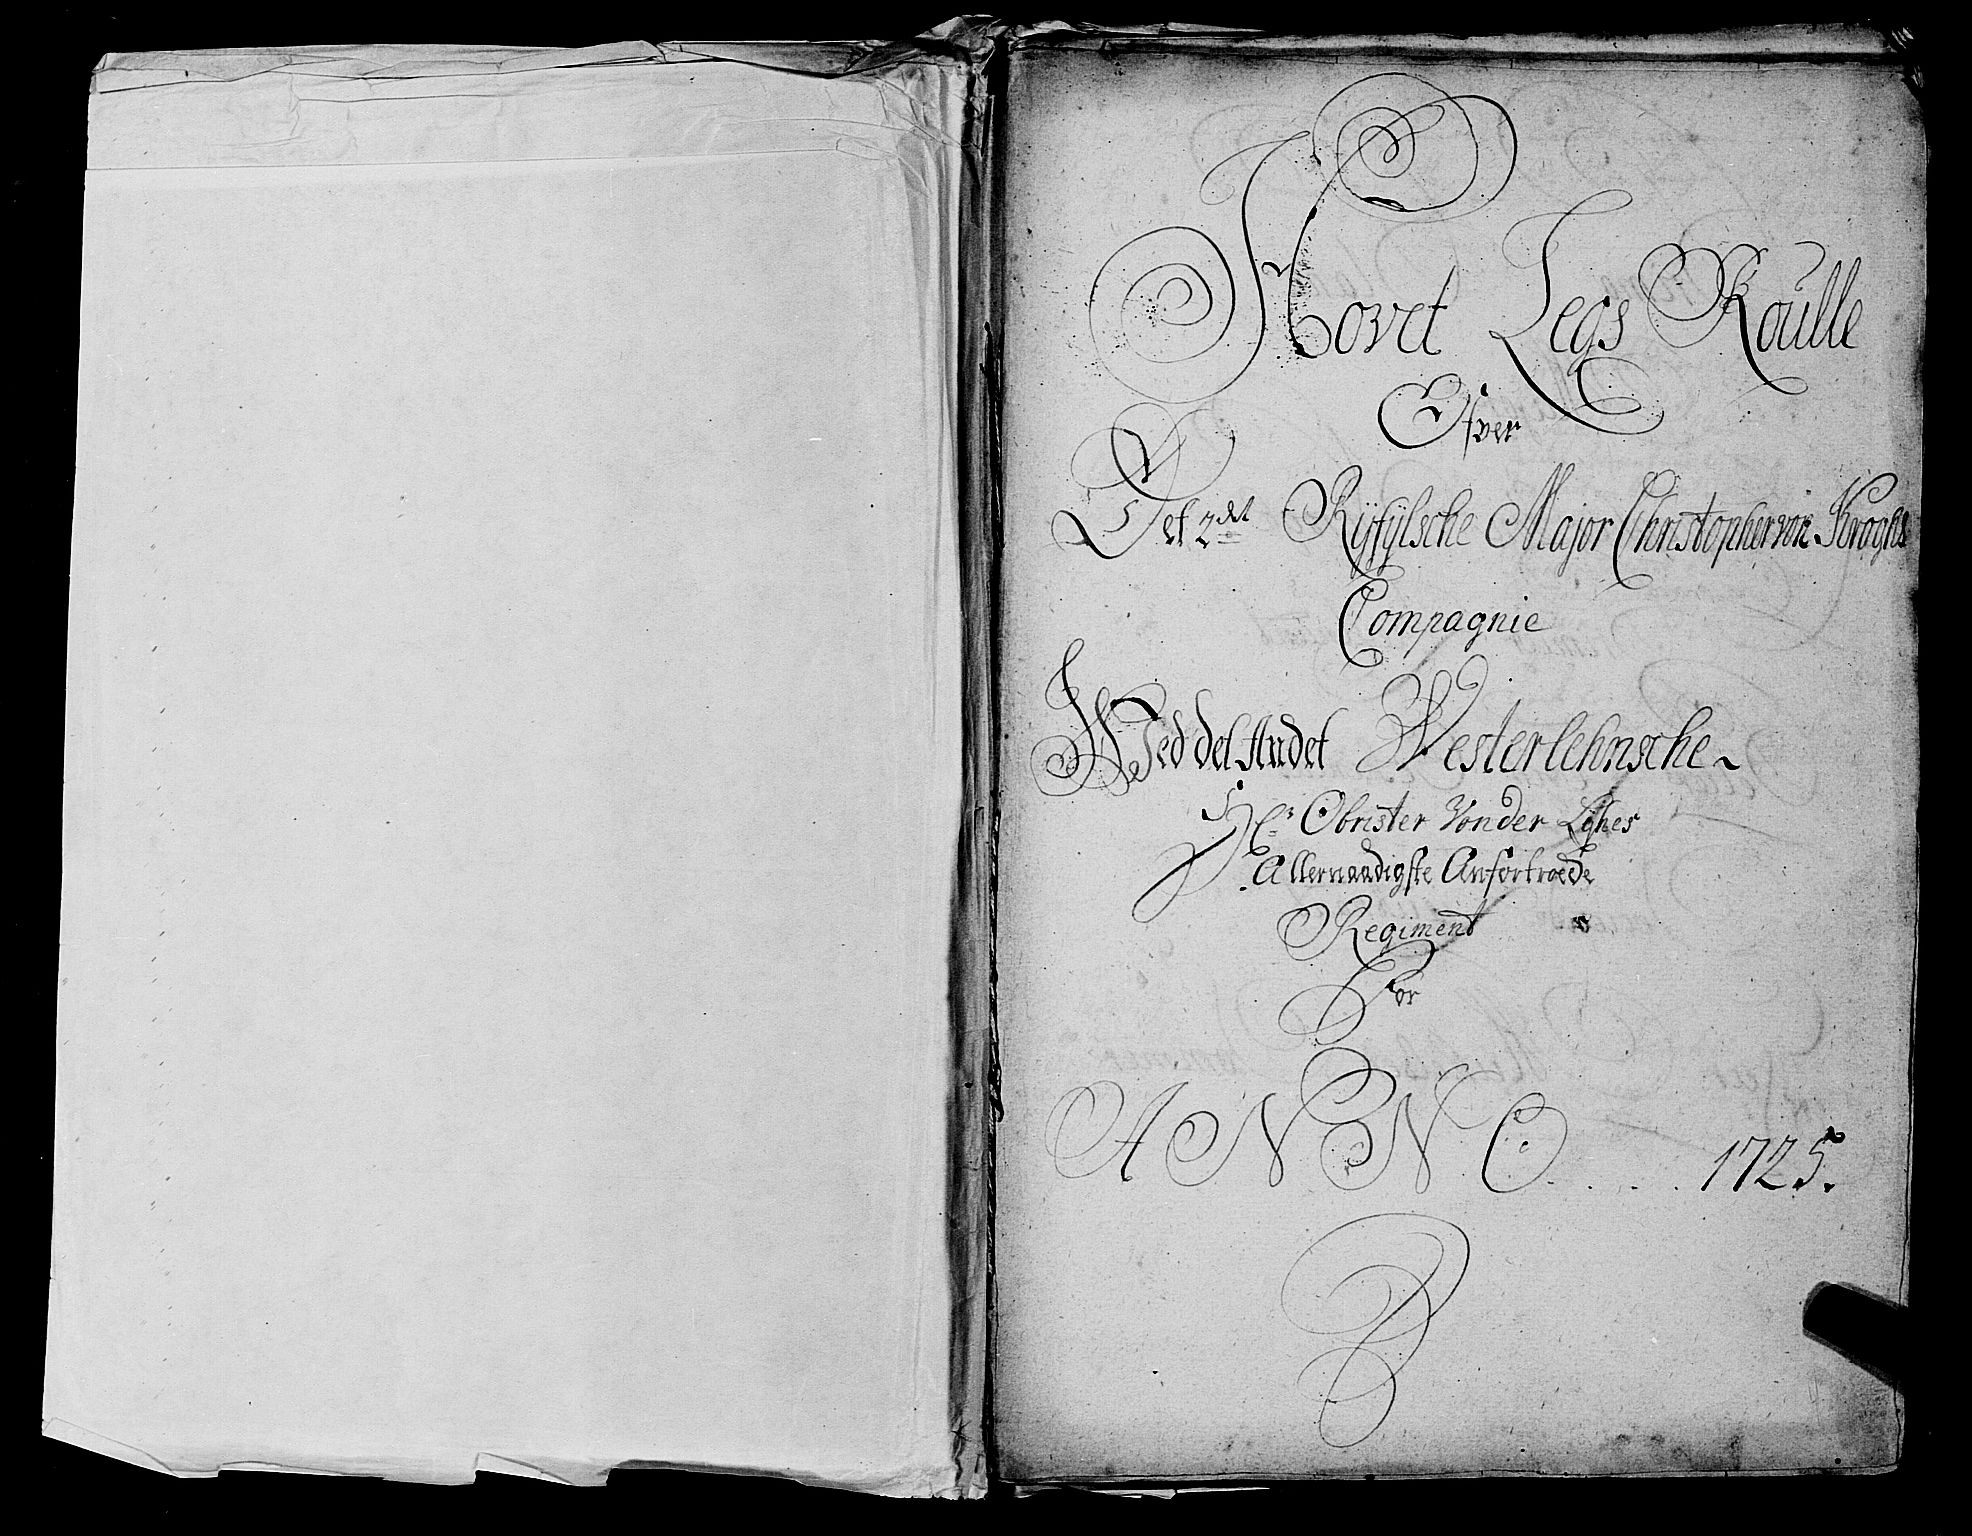 Hovet Legs Roulle
Ofver
Det 2det Ryfylsche Major Christopher von Kroghs
Compagnie
Wed det Andet Westerlehnsche
Hr Obrister Vonder Lyhes
Allernaadigste Anfortroede
Regiment
For
ANNO . . . . . 1725.